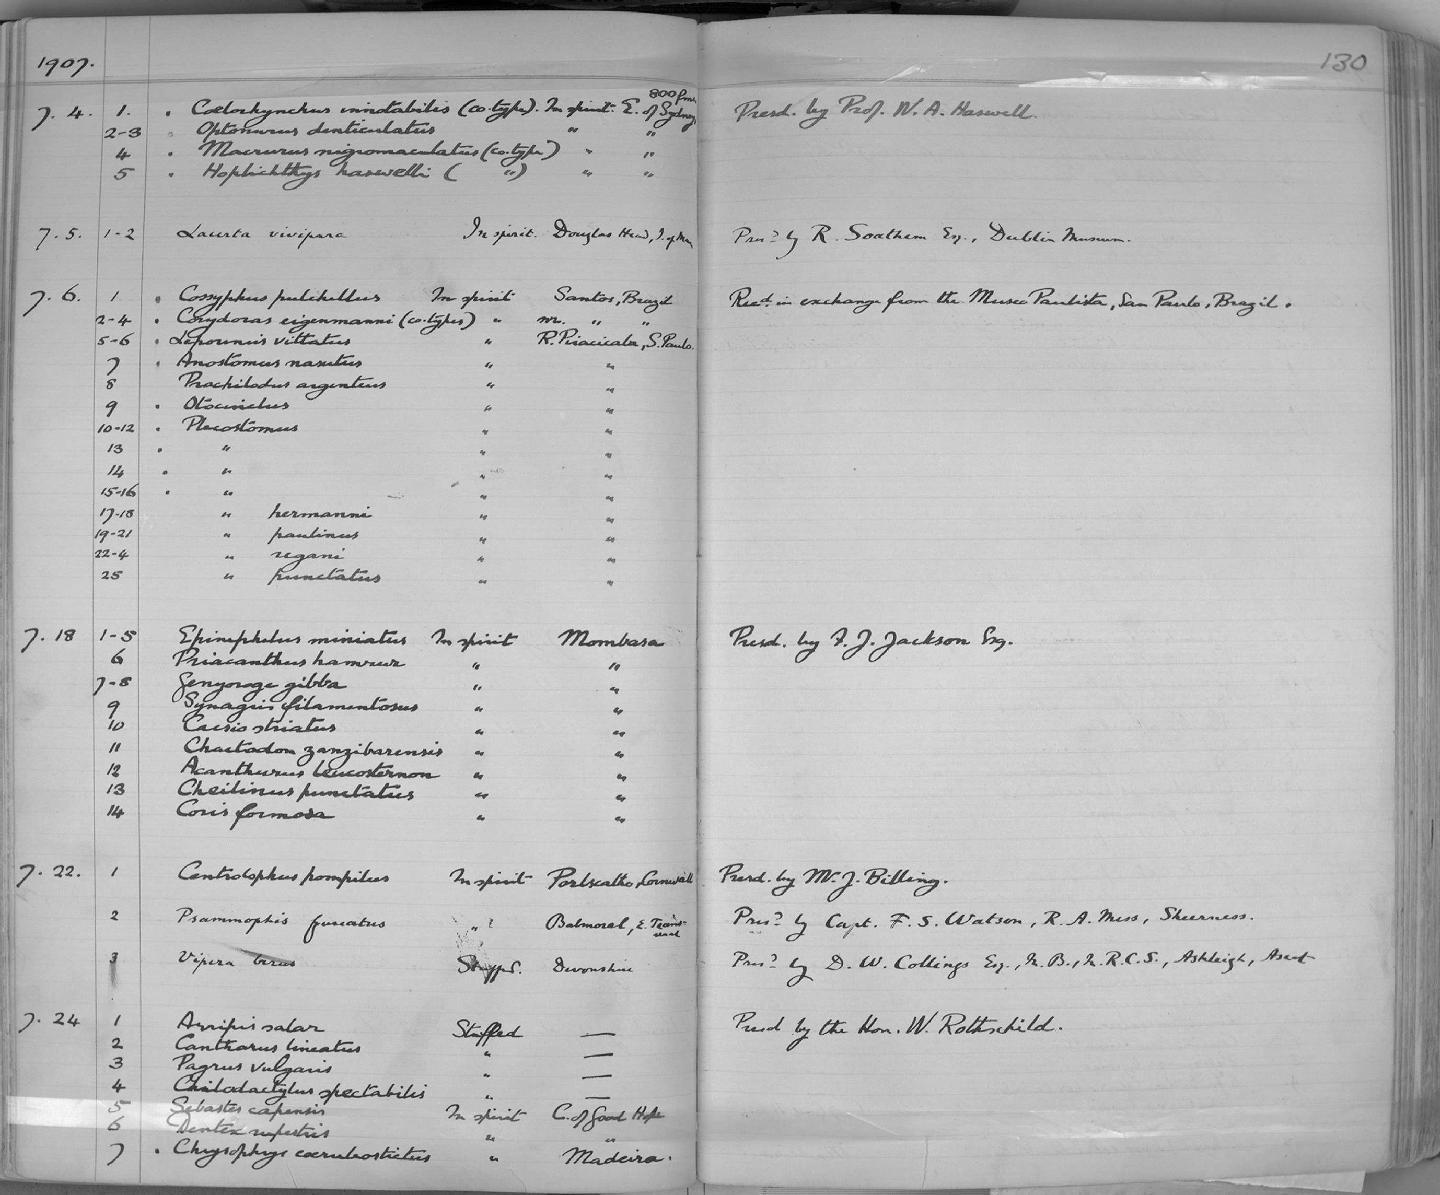 1907.
130
800 fms.
7. 4. 1. Coelorhynchus innotabilis (co-type). In spirit. E. of Sydney Presd. by Prof. W. A. Haswell.
2-3 Optonurus denticulatus " "
4 Macrurus nigromaculatus (co-type) " "
5 Hoplichthys haswelli ( " ) " "
7. 5. 1-2 Lacerta vivipara In spirit. Douglas Head, I. of Man Presd by R. Southern Esq., Dublin Museum.
7. 6. 1 Cossyphus pulchellus In spirit Santos, Brazil Recd. in exchange from the Museo Paulista, San Paulo, Brazil.
2-4 Corydoras eigenmanni (co-types) " nr. " "
5-6 Leporinus vittatus " R. Piracicaba, S. Paulo.
7 Anostomus nasutus " "
8 Prochilodus argenteus " "
9 Otocinclus " "
10-12 Plecostomus " "
13 " " "
14 " " "
15-16 " " "
17-18 " hermanni " "
19-21 " paulinus " "
22-4 " regani " "
25 " punctatus " "
7. 18 1-5 Epinephelus miniatus In spirit Mombasa Presd. by F. J. Jackson Esq.
6 Priacanthus hamrur " "
7-8 Genyoroge gibba " "
9 Synagris filamentosus " "
10 Caesio striatus " "
11 Chaetodon zanzibarensis " "
12 Acanthurus leucosternon " "
13 Cheilinus punctatus " "
14 Coris formosa " "
7. 22. 1 Centrolophus pompilus In spirit Portscatho, Cornwall Presd. by Mr. J. Billing.
2 Psammophis furcatus " Balmoral, E. Transvaal Presd by Capt. F. S. Watson, R. A. Mess, Sheerness.
3 Vipera berus Stuffed. Devonshire Presd by D. W. Collings Esq., M.B., M.R.C.S., Ashleigh, Ascot
7. 24 1 Arripis salar Stuffed — Presd by the Hon. W. Rothschild.
2 Cantharus lineatus " —
3 Pagrus vulgaris " —
4 Chilodactylus spectabilis " —
5 Sebastes capensis In spirit C. of Good Hope
6 Dentex rupestris " "
7 Chrysophrys coeruleostictus " Madeira.